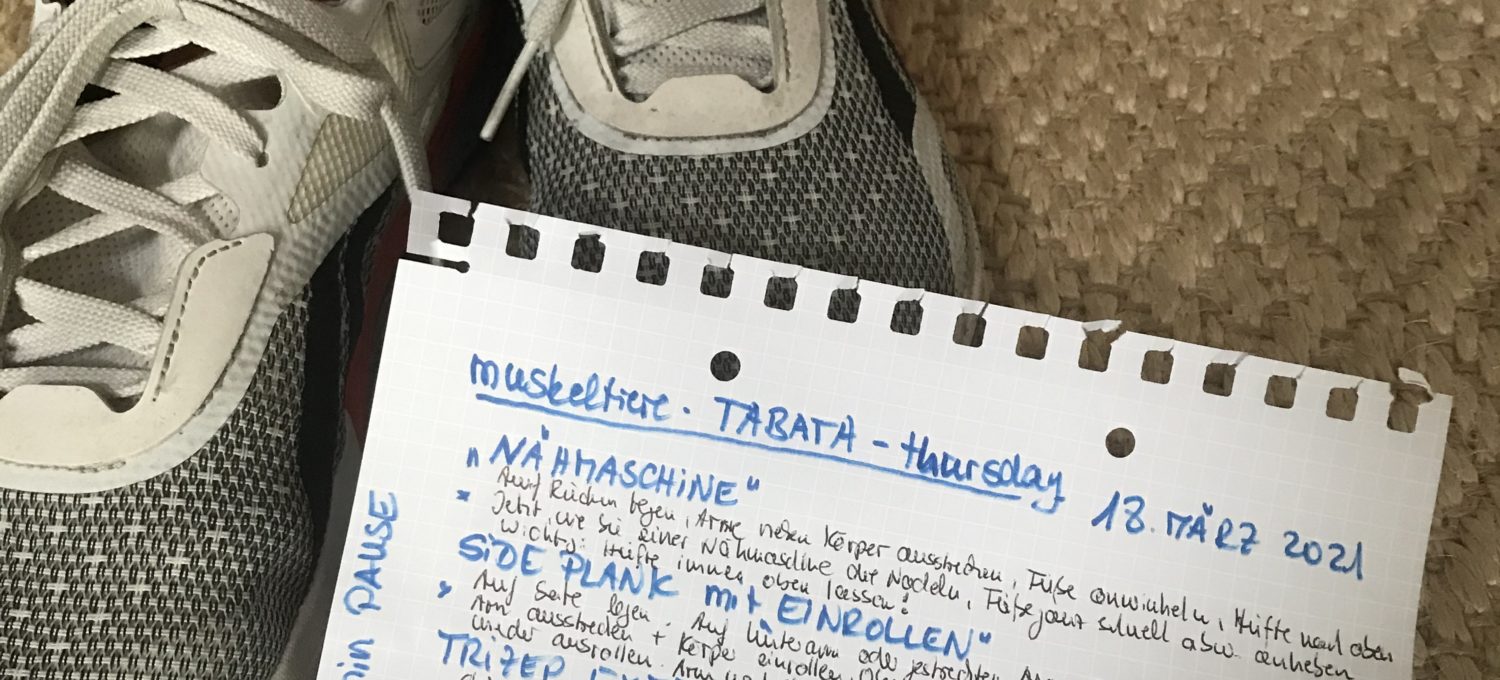 muskeltiere. TABATA - thursday 18. MÄRZ 2021
„NÄHMASCHINE"
* Auf Rücken legen, Arme neben Körper ausstrecken, Füße anwinkeln, Hüfte nach oben
Jetzt wie bei einer Nähmaschine die Nadeln, Füße ganz schnell absw. anheben
Wichtig: Hüfte immer oben lassen!
SIDE PLANK mit EINROLLEN"
* Auf Seite legen. Auf Unterarm oder gestreckten
Arm ausstrecken + Körper einrollen
wieder ausrollen. Arm
TRIZEP
PAUSE